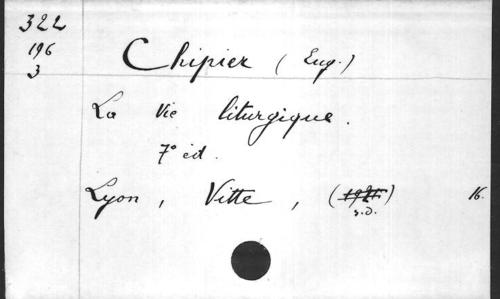 322
196
3
Chipier (Eug.)
La Vie liturgique.
7° éd.
Lyon, Vitte, (
s.d.) 16.